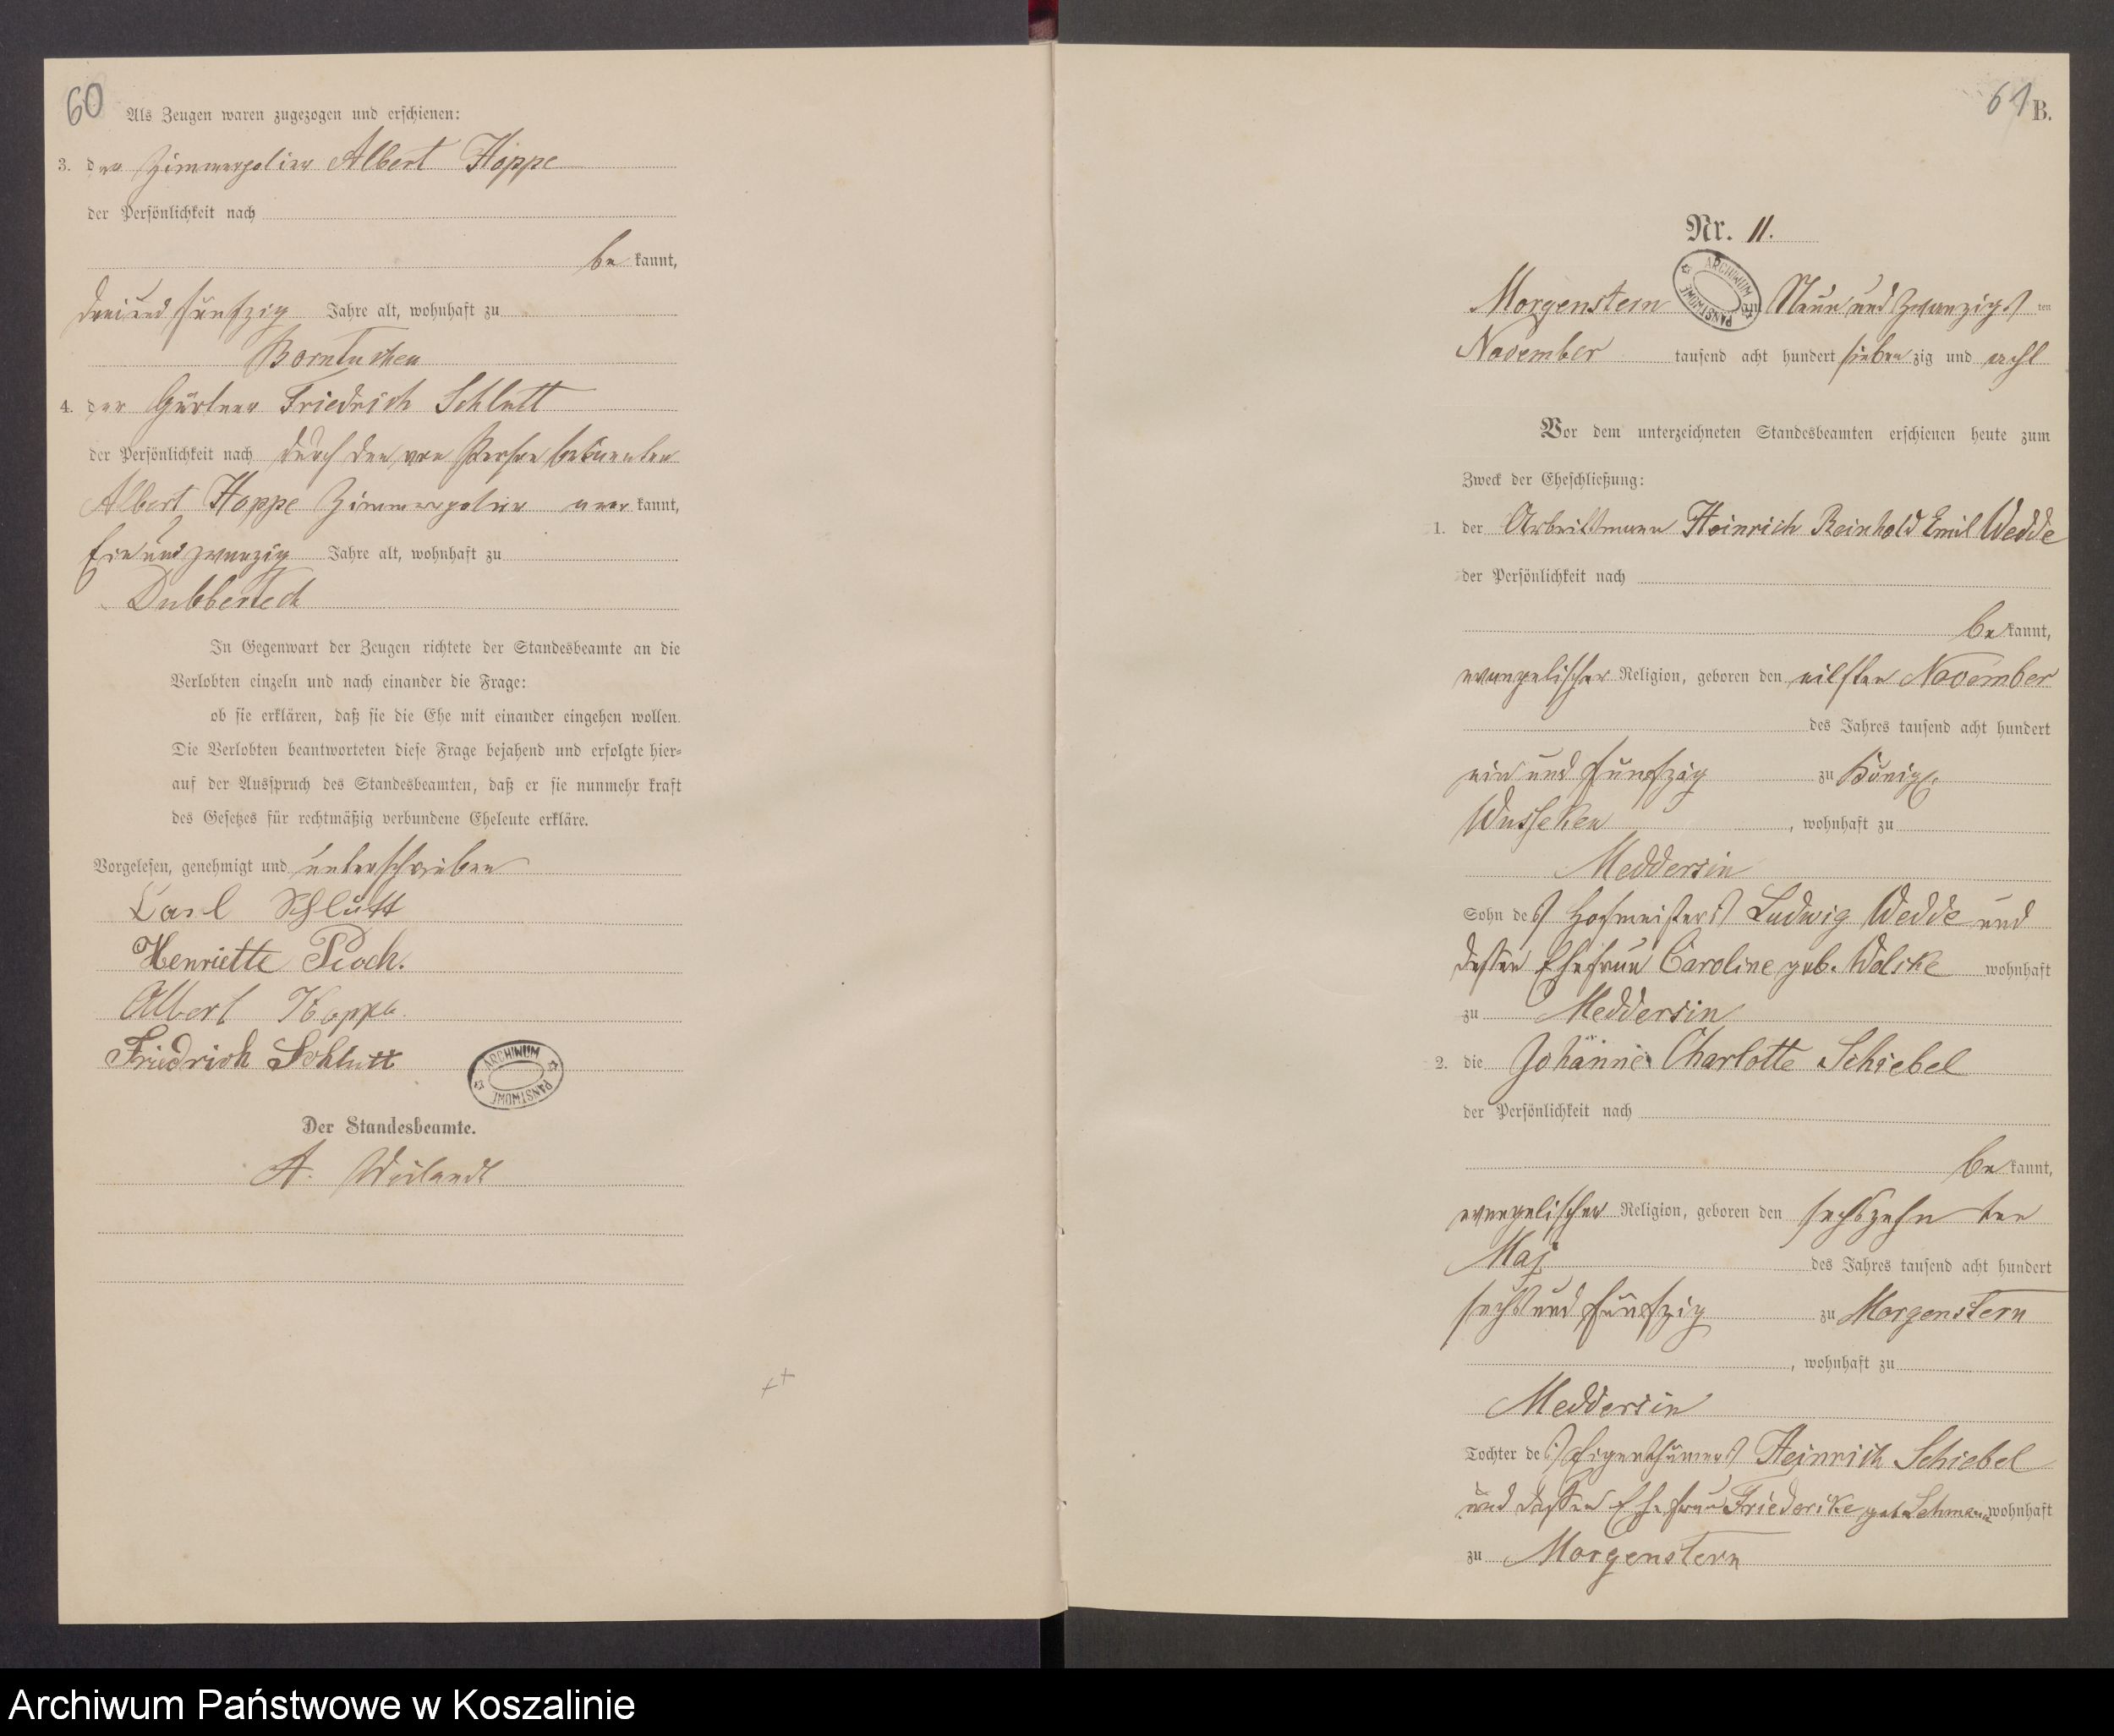 60
Als Zeugen waren zugezogen und erschienen:
3. der Zimmerpolier Albert Hoppe
der Persönlichkeit nach
be kannt,
dreiund fünfzig Jahre alt, wohnhaft zu
Borntuchen
4. der Gärtner Friedrich Schlutt
der Persönlichkeit nach durch den von Person bekannten
Albert Hoppe Zimmerpolier aner kannt,
Ein und zwanzig Jahre alt, wohnhaft zu
Dubbertech
In Gegenwart der Zeugen richtete der Standesbeamte an die
Verlobten einzeln und nach einander die Frage:
ob sie erklären, daß sie die Ehe mit einander eingehen wollen.
Die Verlobten beantworteten diese Frage bejahend und erfolgte hier-
auf der Ausspruch des Standesbeamten, daß er sie nunmehr kraft
des Gesetzes für rechtmäßig verbundene Eheleute erkläre.
Vorgelesen, genehmigt und unterschrieben
Carl Schlutt
Henriette Pioch.
Albert Hoppe.
Friedrich Schlutt
ARCHIWUM PAŃSTWOWE
Der Standesbeamte.
A. Weilandt
61 B.
Nr. 11.
ARCHIWUM PAŃSTWOWE
Morgenstern am Neun und Zwanzigs ten
November tausend acht hundert sieben zig und acht
Vor dem unterzeichneten Standesbeamten erschienen heute zum
Zweck der Eheschließung:
1. der Arbeitsmann Heinrich Reinhold Emil Wedde
der Persönlichkeit nach
be kannt,
evangelischer Religion, geboren den eilften November
des Jahres tausend acht hundert
ein und fünfzig zu Königl.
Wusseken, wohnhaft zu
Meddersin
Sohn des Hofmeisters Ludwig Wedde und
dessen Ehefrau Caroline geb. Wolske wohnhaft
zu Meddersin
2. die Johanne Charlotte Schiebel
der Persönlichkeit nach
be kannt,
evangelischer Religion, geboren den sechszehn ten
Maj des Jahres tausend acht hundert
sechs und fünfzig zu Morgenstern
, wohnhaft zu
Meddersin
Tochter des Eigenthümers Heinrich Schiebel
und dessen Ehefrau Friederike geb. Lehmann wohnhaft
zu Morgenstern
Archiwum Państwowe w Koszalinie